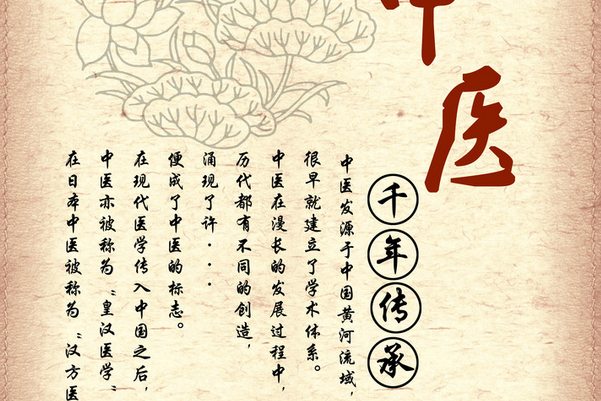 中医
千年传承
中医发源于中国黄河流域,
很早就建立了学术体系。
中医在漫长的发展过程中,
历代都有不同的创造,
涌现了许...
便成了中医的标志。
在现代医学传入中国之后,
中医亦被称为“皇汉医学”
在日本中医被称为“汉方医